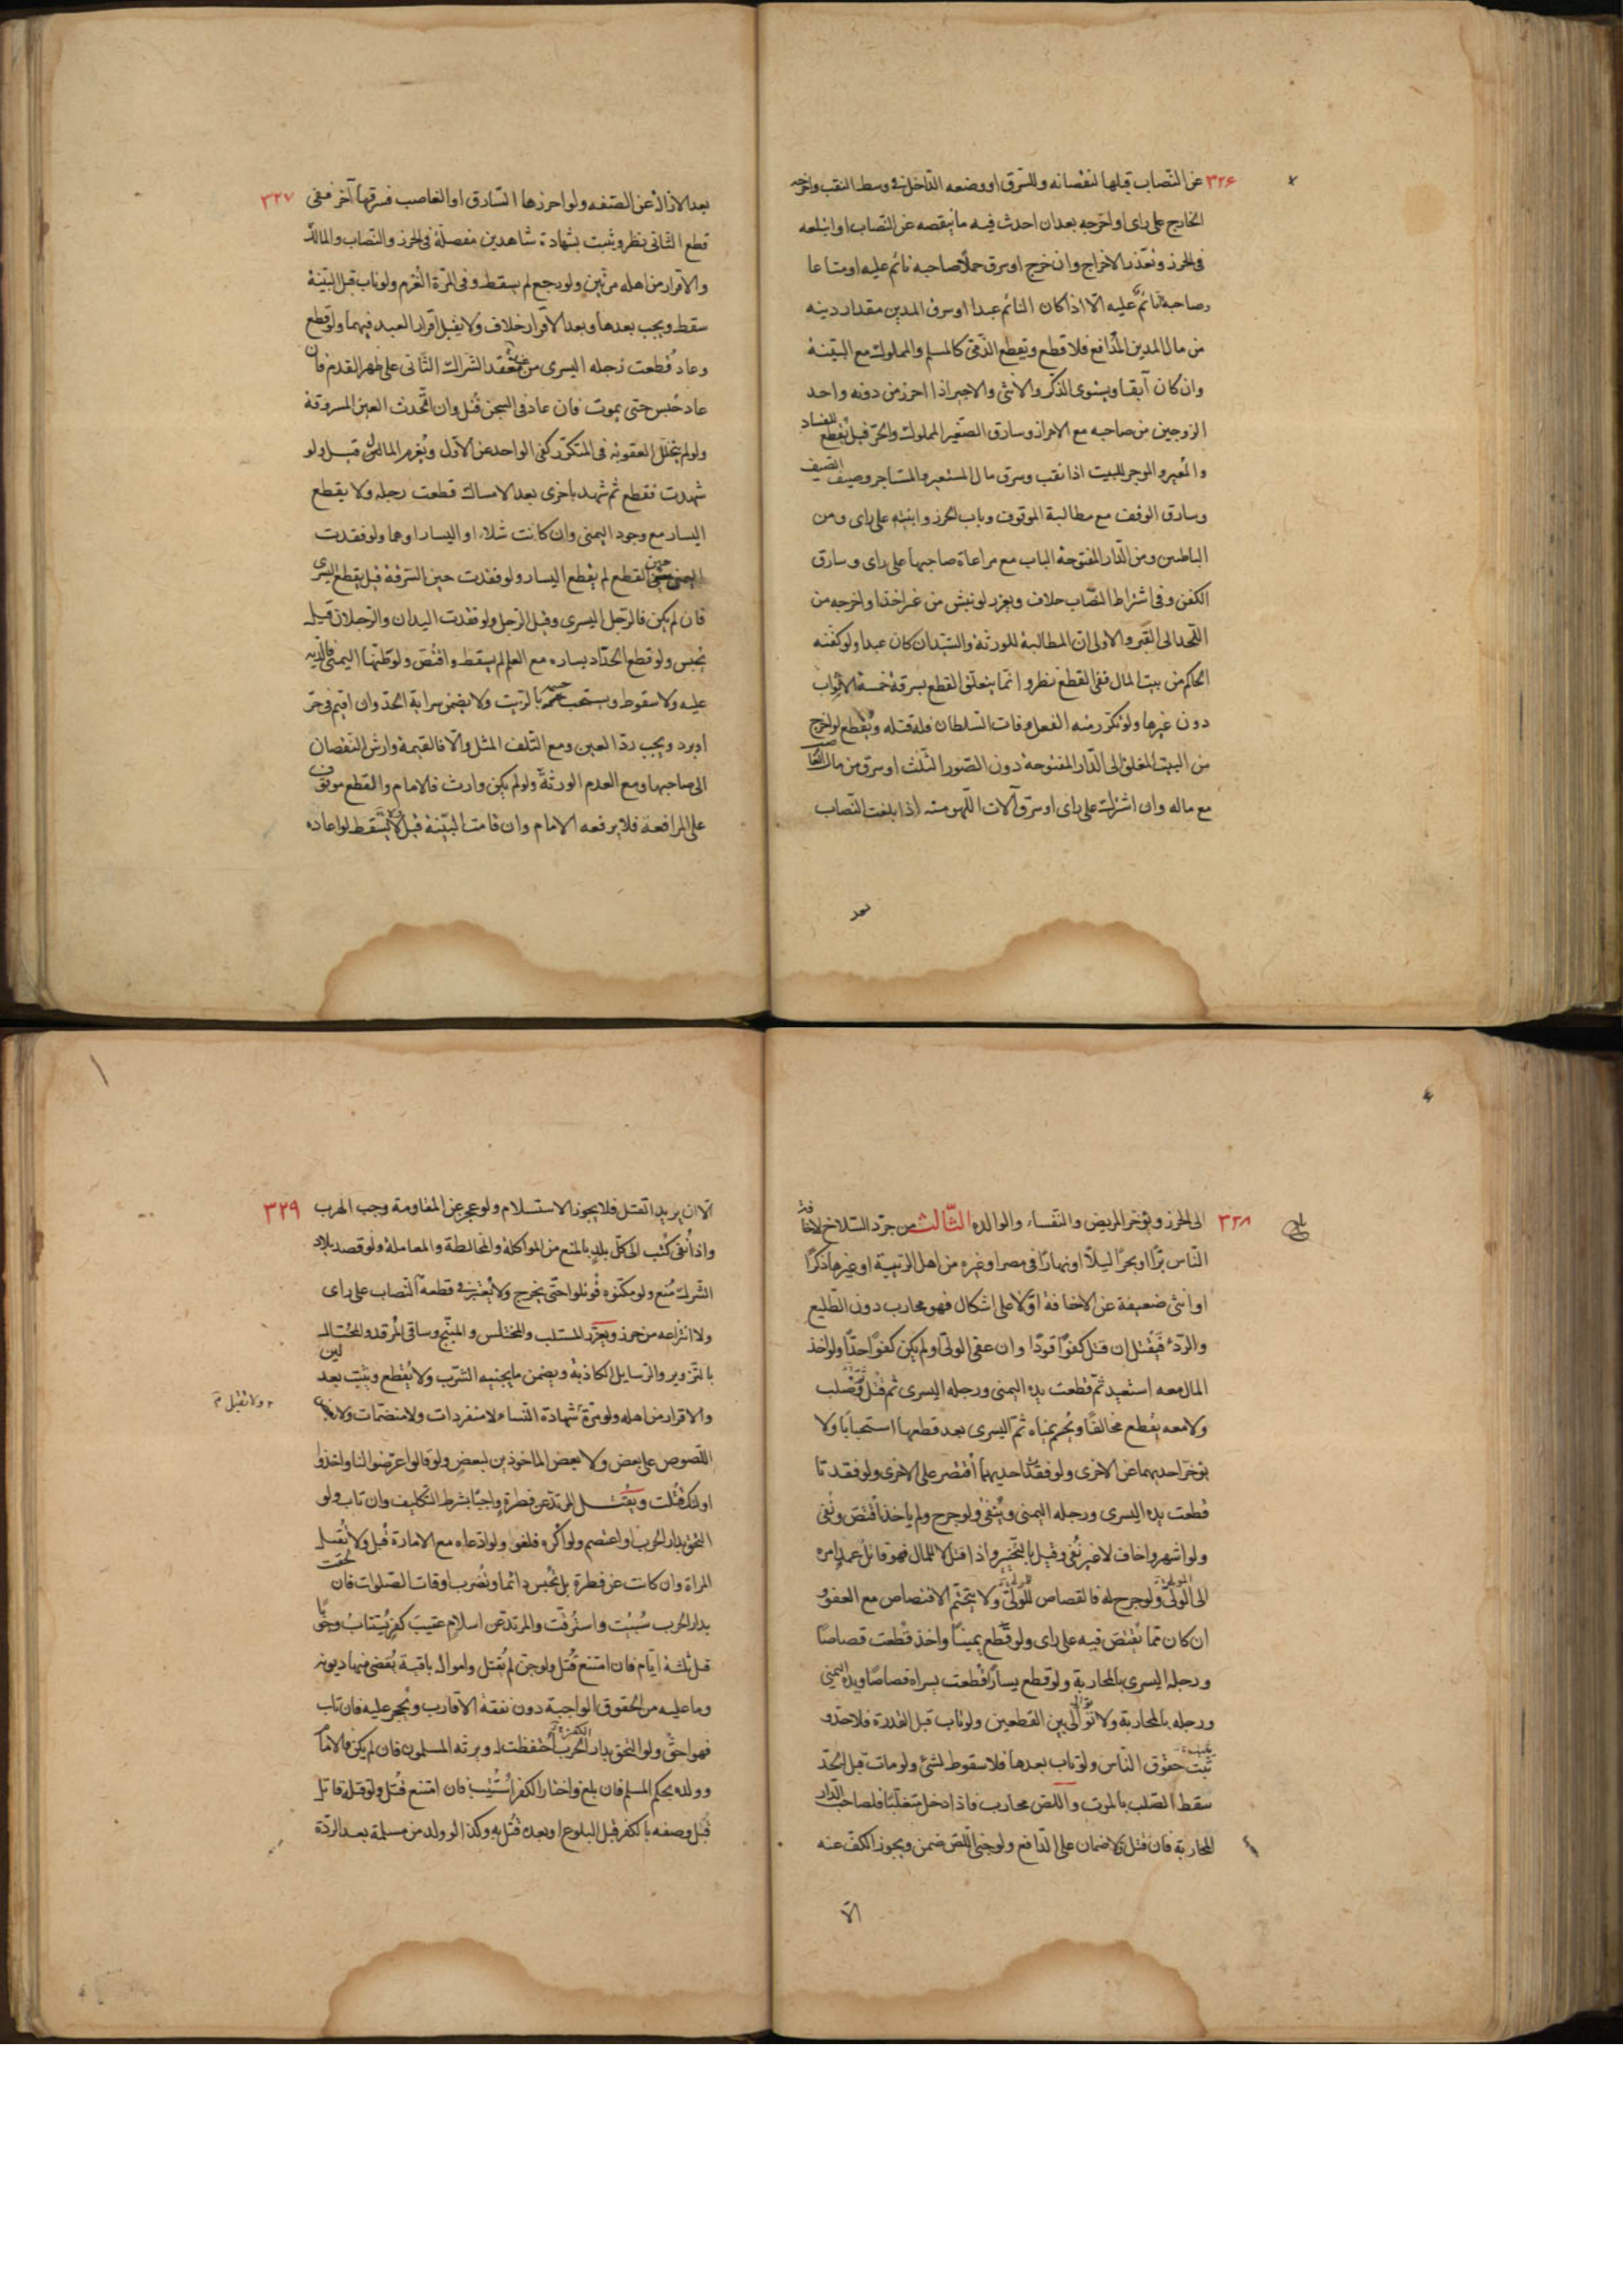 ٣٢۶ عن النصاب قبلها لنقصانه وللسرق او وضعه الداخل فى وسط النقب واخرجه
الخارج على راى او اخرجه بعد ان احدث فيه ما ينقصه عن النصاب او ابتلعه
فى الحرز وتعذر الاخراج وان خرج او سرق حملا صاحبه نائم عليه او متاعا
وصاحبه نائم عليه الا اذا كان النائم عبدا او سرق المدين مقدار دينه
من مال المدين المدافع فلا قطع ويقطع الذمى كالمسلم والمملوك مع البينة
وان كان آبقا ويستوى الذكر والانثى والاجير اذا احرز من دونه واحد
الزوجين من صاحبه مع الاحراز وسارق الصغير المملوك والحر قيل يقطع للفساد
والمعير والموجر للبيت اذا نقب وسرق مال المستعير والمستاجر وضيف الضيف
وسارق الوقف مع مطالبة الموقوف وباب الحرز وابنيته على راى ومن
الباطنين ومن الدار المفتوحة الباب مع مراعاة صاحبها على راى وسارق
الكفن وفى اشتراط النصاب خلاف ويعزر لو نبش من غير اخذ او اخرجه من
اللحد الى القبر والاولى ان المطالبة للورثة والسيد ان كان عبدا ولو كفنه
الحاكم من بيت المال ففى القطع نظر وانما يتعلق القطع بسرقة خمسة الاثواب
دون غيرها ولو تكرر منه الفعل وفات السلطان فله قتله ويقطع لو اخرج
من البيت المغلق الى الدار المفتوحة دون الصور الثلث او سرق من مال الغاصب
مع ماله وان اشترك على راى او سرق آلات اللهو منه اذا بلغت النصاب
بعد
٣٢٧ بعد الازالة عن الصفه ولو احرزها السارق او الغاصب فسرقها آخر ففى
قطع الثانى نظر ويثبت بشهادة شاهدين مفصلة فى الحرز والنصاب والمال
والاقرار من اهله مرتين ولو رجع لم يسقط وفى المرة الغرم ولو تاب قبل البينة
سقط ويجب بعدها وبعد الاقرار خلاف ولا يقبل اقرار العبد فيهما ولو قطع
وعاد قطعت رجله اليسرى من معقد الشراك الثانى على ظهر القدم فان
عاد حبس حتى يموت فان عاد فى السجن قتل وان اتحدت العين المسروقة
ولو لم يتخلل العقوبة فى المتكرر كفى الواحد عن الاول ويغرم المالين قيل ولو
شهدت فقطع ثم شهد باخرى بعد الامساك قطعت رجله ولا يقطع
اليسار مع وجود اليمنى وان كانت شلاء او اليسار او هما ولو فقدت
اليمنى حين القطع لم يقطع اليسار ولو فقدت حين السرقة قيل يقطع اليسرى
فان لم يكن فالرجل اليسرى وقيل الرجل ولو فقدت اليدان والرجلان قيل
يحبس ولو قطع الحداد يساره مع العلم لم يسقط واقتص ولو ظنها اليمنى فالدية
عليه ولا سقوط ويستحب حسمه بالزيت ولا يضمن سراية الحد وان اقيم فى حر
او برد ويجب رد العين ومع التلف المثل والا فالقيمة وارش النقصان
الى صاحبها ومع العدم الورثة ولو لم يكن وارث فالامام والقطع موقوف
على المرافعة فلا يرفعه الامام وان قامت البينة قبل ولا يسقط لو اعاده
٣٢٨ الى الحرز ويؤخر المريض والنفساء والوالده الثالث من جرد السلاح لاخافة
الناس برا او بحرا ليلا او نهارا فى مصر او غيره من اهل الريبة او غيرها ذكرا
او انثى ضعيفة عن الاخافة اولا على اشكال فهو محارب دون الطليع
والردء فيقتل ان قتل كفوا قودا وان عفى الولى او لم يكن كفوا حدا ولو اخذ
المال معه استعيد ثم قطعت يده اليمنى ورجله اليسرى ثم قتل وصلب
ولا معه يقطع مخالفا ويحسم يمناه ثم اليسرى بعد قطعها استحبابا ولا
يؤخر احديهما عن الاخرى ولو فقد احديهما اقتصر على الاخرى ولو فقدتا
قطعت يده اليسرى ورجله اليمنى وينفى ولو جرح ولم ياخذ اقتص ونفى
ولو اشهر واخاف لا غير نفى وقيل بالتخيير واذا قتل لا للمال فهو قاتل عمد امره
الى الولى ولو جرح له فالقصاص للولى ولا يتحتم الاقتصاص مع العفو
ان كان مما يقتص فيه على راى ولو قطع يمينا واخذ قطعت قصاصا
ورجله اليسرى بالمحاربة ولو قطع يسارا قطعت يسراه قصاصا ويده اليمنى
ورجله بالمحاربة ولا توالى بين القطعين ولو تاب قبل القدرة فلا حد و
يثبت حقوق الناس ولو تاب بعدها فلا سقوط لشئ ولو مات قبل الحد
سقط الصلب بالموت واللص محارب فاذا دخل متغلبا فلصاحب الدار
المحاربة فان قتل فلا ضمان على الدافع ولو جنى اللص ضمن ويجوز الكف عنه
الا
٣٢٩ الا ان يريد القتل فلا يجوز الاستسلام ولو عجز عن المقاومة وجب الهرب
واذا نفى كتب الى كل بلد بالمنع من المواكلة والمخالطة والمعاملة ولو قصد بلاد
الشرك منع ولو مكنوه قوتلوا حتى يخرج ولا يعتبر فى قطعه النصاب على راى
ولا انتزاعه من حرز ويعزر المستلب والمختلس والمبنج وساقى المرقد والمحتال
بالتزوير والرسايل الكاذبة ويضمن ما يجنيه الشرب ولا يقطع ويثبت بعدلين
والاقرار من اهله ولو مرة شهادة النساء لا منفردات ولا منضمات ولا
ولا تقبل
اللصوص على بعض ولا بعض الماخوذين لبعض ولو قالوا عرضوا لنا واخذوا
اولئك قبلت ويقتل المرتد عن فطرة واجبا بشرط التكليف وان تاب ولو
التحق بدار الحرب او اعتصم ولو اكره فلغو ولو ادعاه مع الامارة قبل ولا تقتل
المراة وان كانت عن فطرة بل تحبس دائما وتضرب اوقات الصلوات فان لحقت
بدار الحرب سبيت واسترقت والمرتد عن اسلام عقيب كفر يستتاب وجوبا
قيل ثلثة ايام فان امتنع قتل ولو جن لم يقتل وامواله باقية يقضى منها ديونه
وما عليه من الحقوق الواجبة دون نفقة الاقارب ويحجر عليه فان تاب
فهو احق ولو التحق بدار الحرب احتفظت له ويرثه المسلمون فان لم يكن فالامام
وولده بحكم المسلم فان بلغ واختار الكفر استتيب فان امتنع قتل ولو قتله قاتل
قبل وصفه بالكفر قبل البلوغ او بعده قتل به وكذا لو ولد من مسلمة بعد الردة